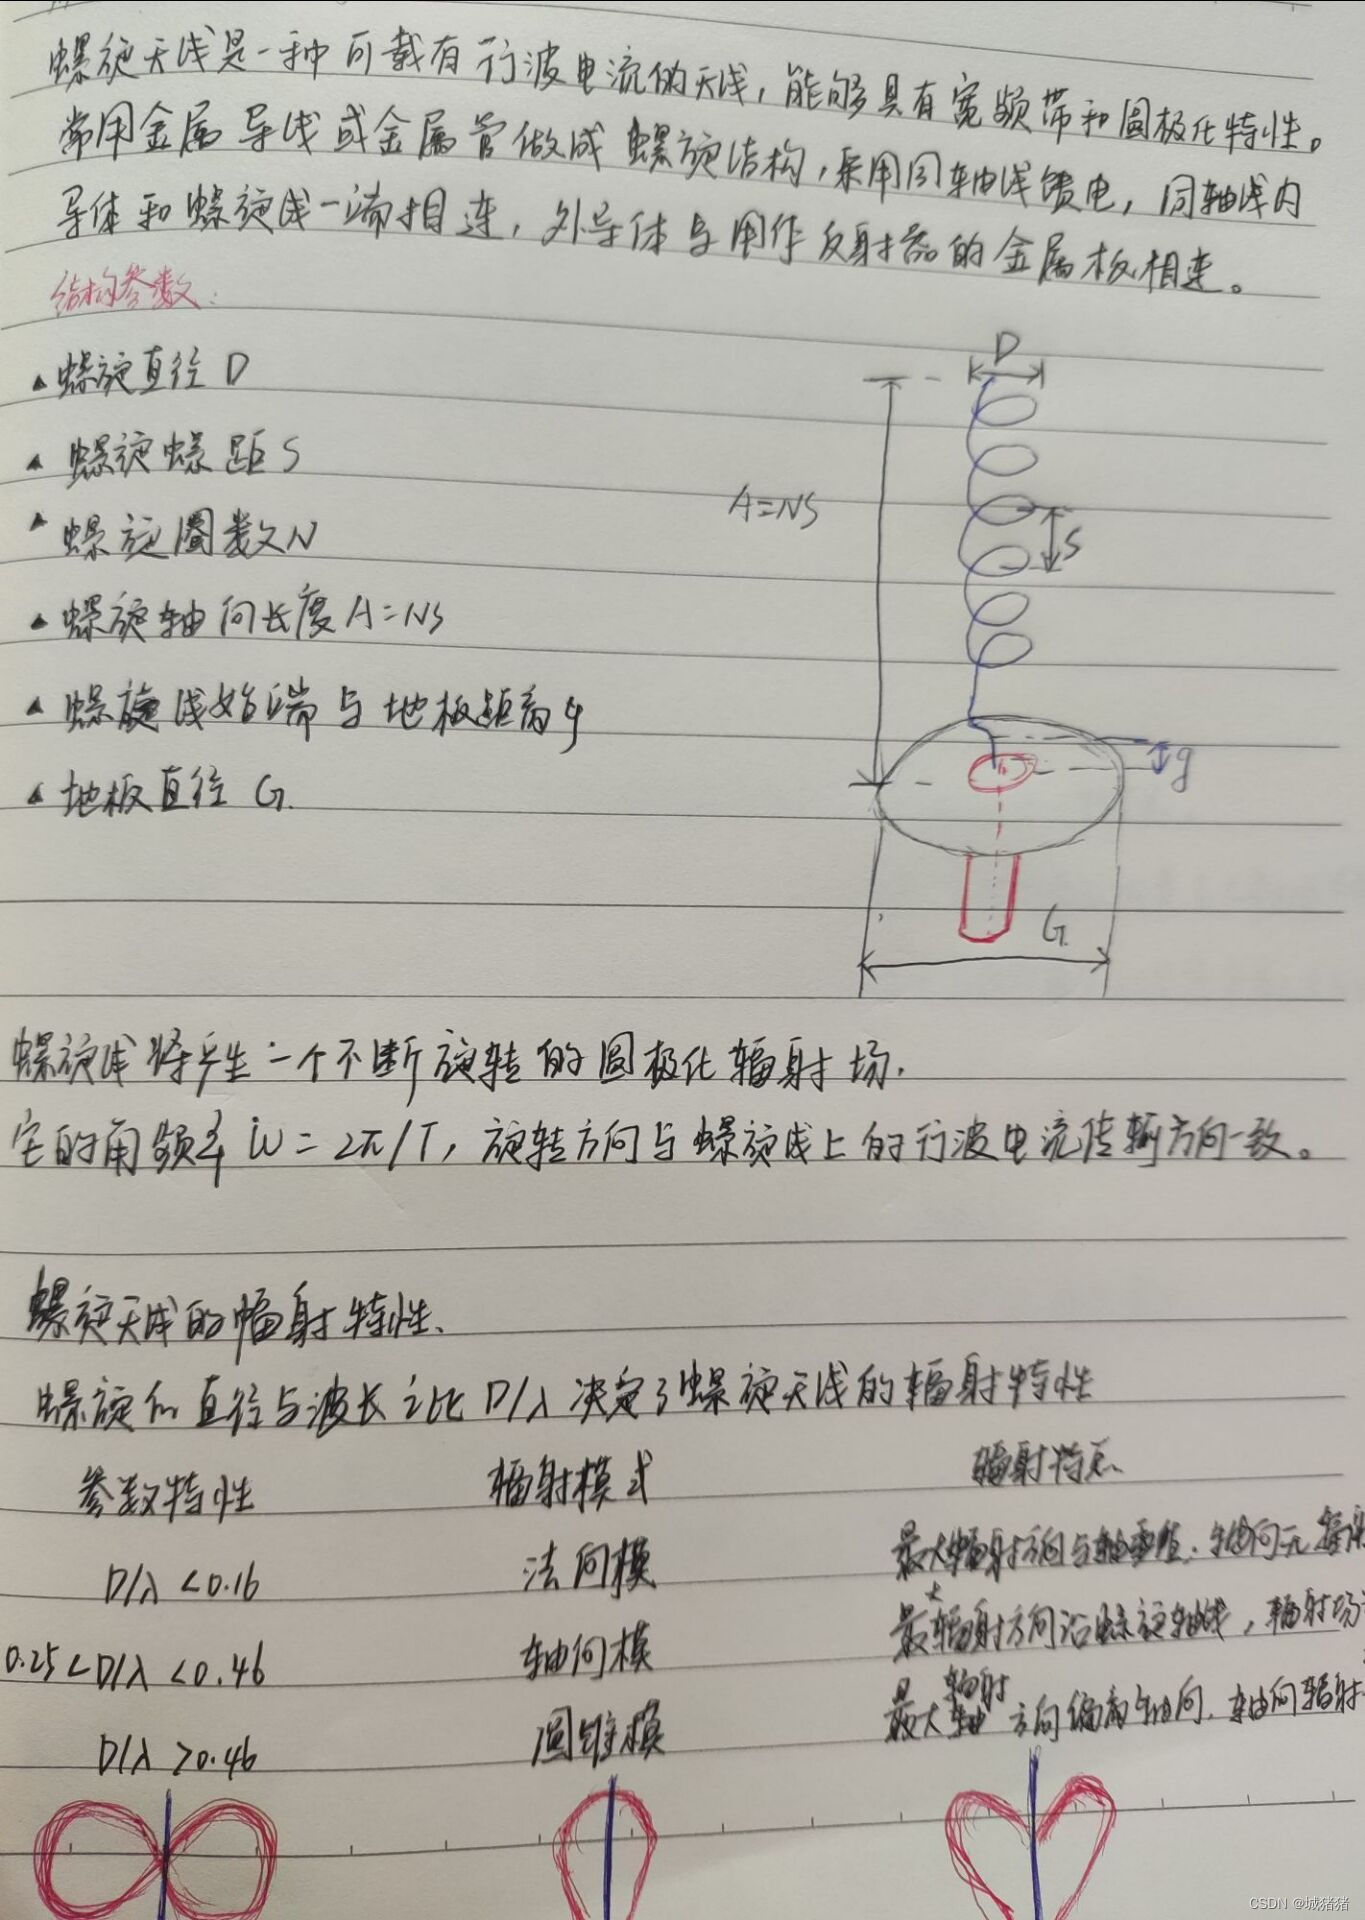 螺旋天线是一种可载有行波电流的天线，能够具有宽频带和圆极化特性。
常用金属导线或金属管做成螺旋结构，采用同轴线馈电，同轴线内
导体和螺旋线一端相连，外导体与用作反射器的金属板相连。
结构参数：
▲螺旋直径D
▲螺旋螺距S
▲螺旋圈数N
▲螺旋轴向长度A=NS
▲螺旋线始端与地板距离g
▲地板直径G.
D
A=NS
S
g
G.
螺旋线将产生一个不断旋转的圆极化辐射场.
它的角频率w=2π/T，旋转方向与螺旋线上的行波电流传输方向一致。
螺旋天线的辐射特性、
螺旋的直径与波长之比D/λ决定了螺旋天线的辐射特性
参数特性 辐射模式 辐射特点
D/λ<0.16 法向模 最大辐射方向与轴垂直.轴向无辐射
0.25<D/λ<0.46 轴向模 最大辐射方向沿螺旋轴线，辐射场
D/λ>0.46 圆锥模 最大辐射方向偏离轴向.轴向辐射
CSDN @城猪猪